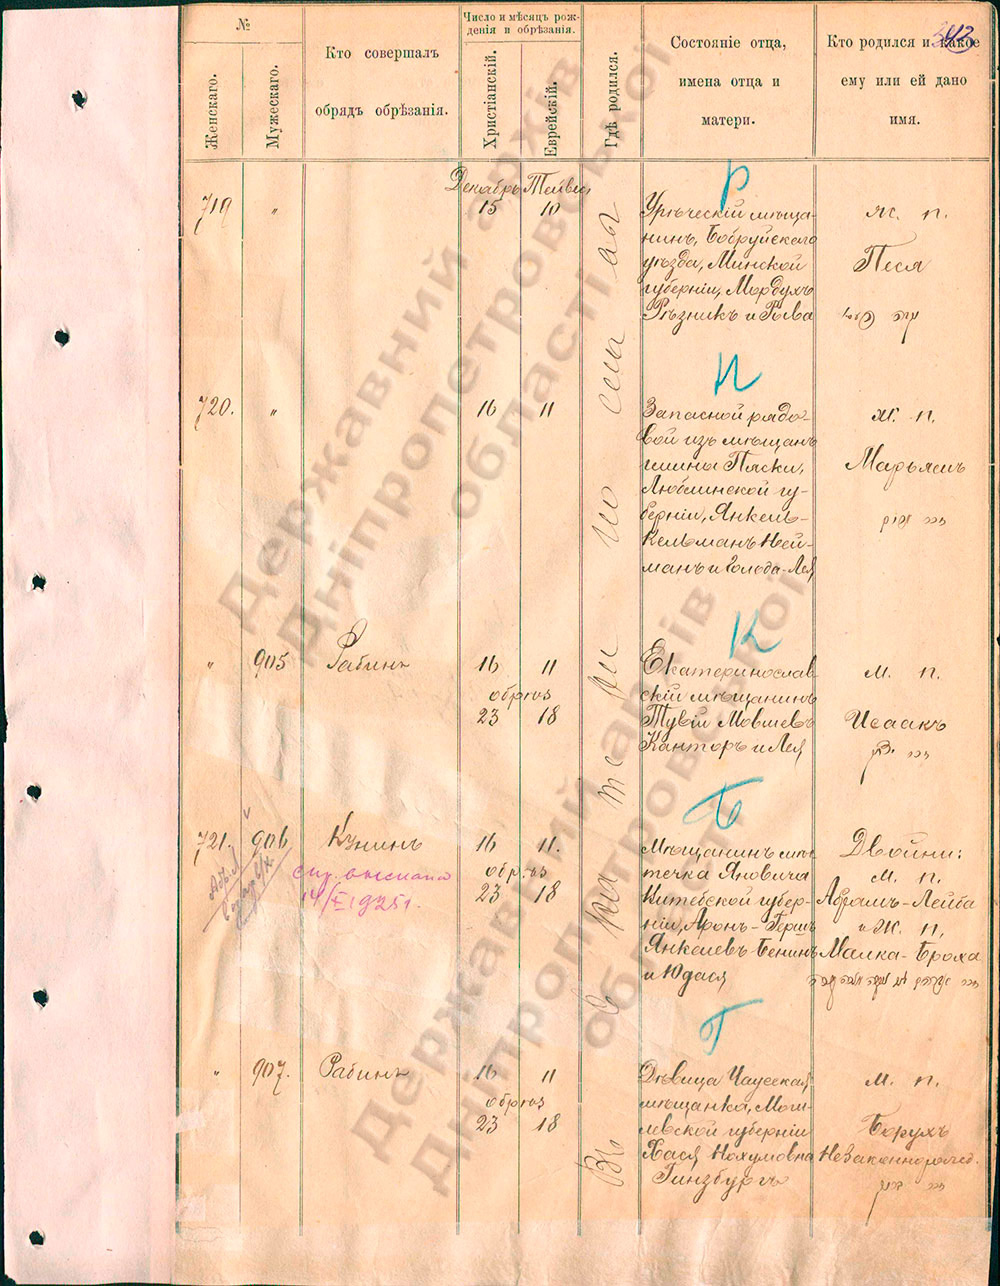 №
Женскаго.
Мужескаго.
Кто совершалъ
обрядъ обрѣзанія.
Число и мѣсяцъ рож-
денія и обрѣзанія.
Христіанскій.
Еврейскій.
Гдѣ родился.
Состояніе отца,
имена отца и
матери.
Кто родился и какое
ему или ей дано
имя.
Декабрь
719
"
15
10
Р
мѣща-
нинъ, Бобруйскаго
уѣзда, Минской
губерніи, Мордухъ
Рѣзникъ и Рыва
ж. п.
Песя
720.
"
16
11
Н
Запасной рядо-
вой изъ мѣщанъ
гмины Пяски,
Люблинской гу-
берніи, Янкель-
Кельманъ Ней-
манъ и Голода-Лея
ж. п.
Марьямъ
"
905
Рабинъ
16
11
обрѣз
23
18
К
Екатеринослав-
скій мѣщанинъ
Тувій Мовшевъ
Канторъ и Лея
м. п.
Исаакъ
721.
906
Кунинъ
16
11.
обрѣз
23
18
Б
Мѣщанинъ мѣс-
течка Яновича
Витебской губер-
ніи, Аронъ-Гершъ
Янкелевъ Бенинъ
и Юдася
Двойни:
м. п.
Абрамъ-Лейба
и Ж. п.
Малка-Броха
"
907.
Рабинъ
16
11
обрѣз
23
18
Г
Дѣвица Чауская
мѣщанка, Моги-
левской губерніи
Хася Нохумовна
Гинзбургъ
м. п.
Борухъ
Незаконнорожд.
Державний архів
Дніпропетровської
області
Державний архів
Дніпропетровської
області